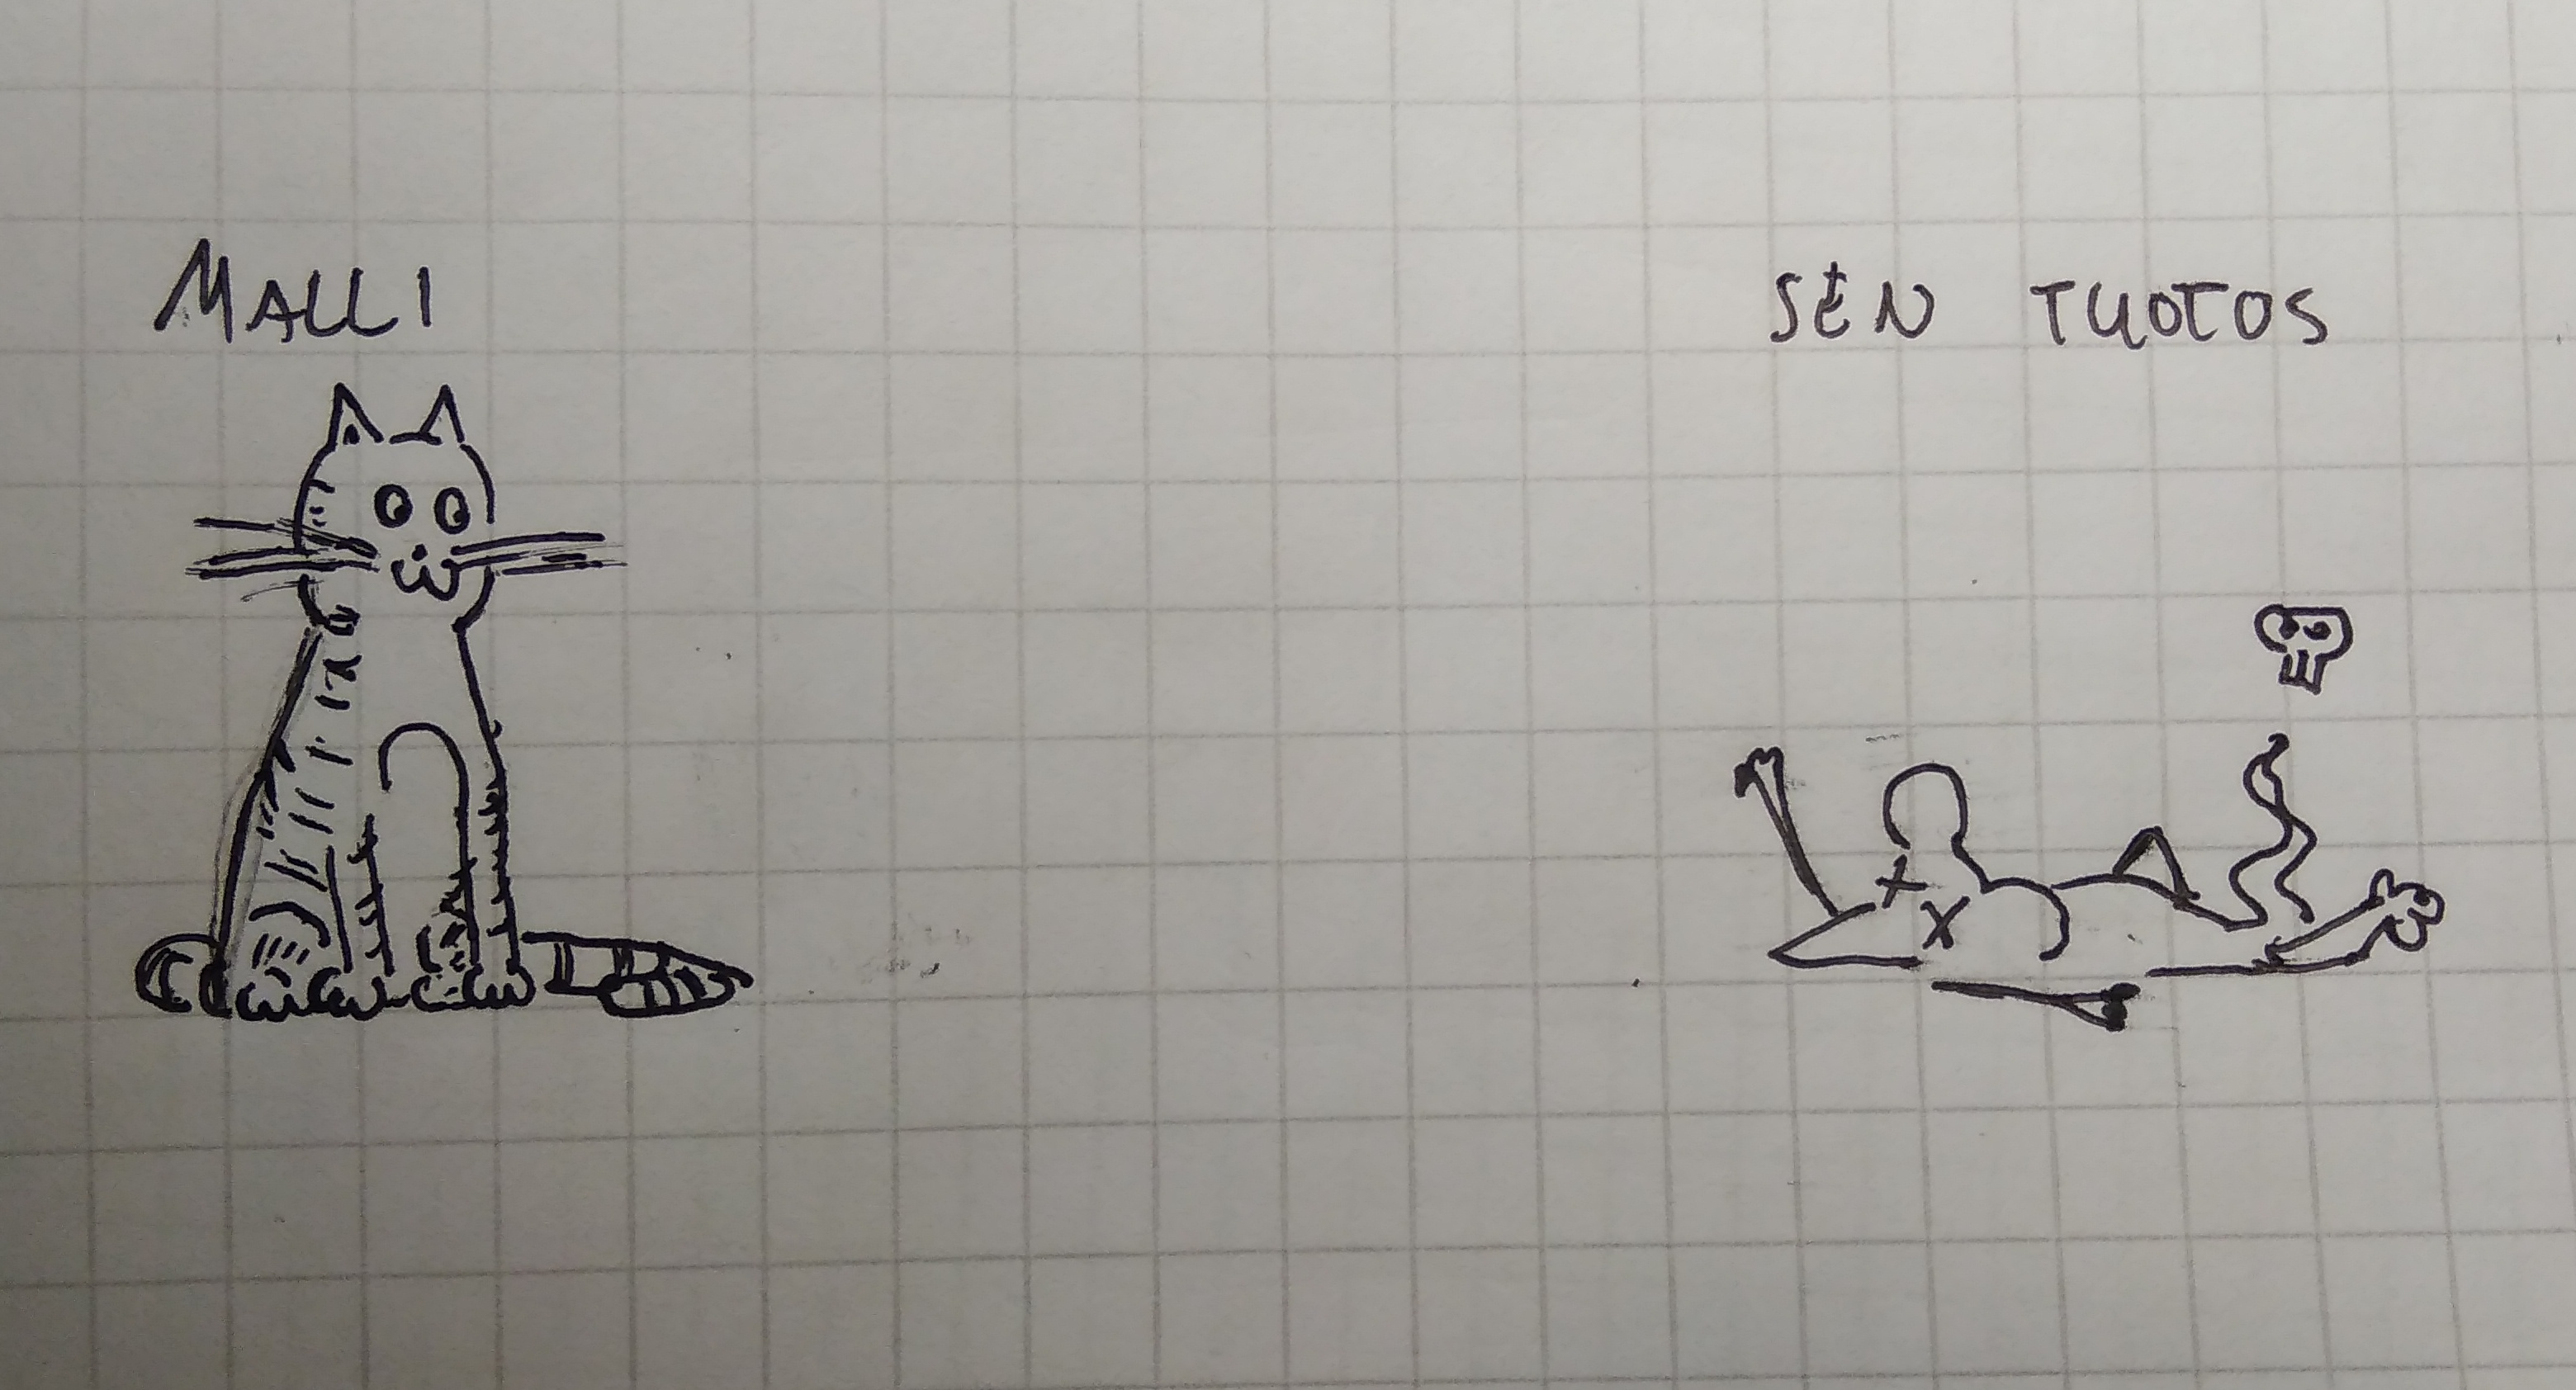 MALLI
SEN TUOTOS